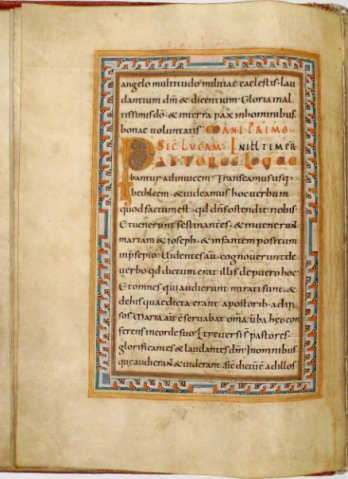 angelo multitudo militiae caelestis· lau
dantium dm̄ & dicentium· Gloria in al
tissimis dō· & in terra pax in hominibus
bonae voluntatis· MANE PRIMO·
SEC LUCAM· IN ILL TEMPR
PASTORES LOQUE
bantur ad invicem· Transeamus usq·
bethleem· & videamus hoc verbum
quod factum est· qd dn̄s ostendit nobis·
Et venerunt festinantes· & invenerun
mariam & ioseph· & infantem positum
in p̄sepio· Videntes au· cognoverunt de
verbo qd dictum erat illis de puero hoc·
Et omnes qui audierunt mirati sunt· &
de his quae dicta erant a pastorib· ad ip
sos· Maria aūt c̄servabat om̄a v̄ba hec con
ferens in corde suo· Et reversi s̄ pastores·
glorificantes & laudantes dm̄· In omnibus
quae audieran & viderant· sic dictū ē ad illos